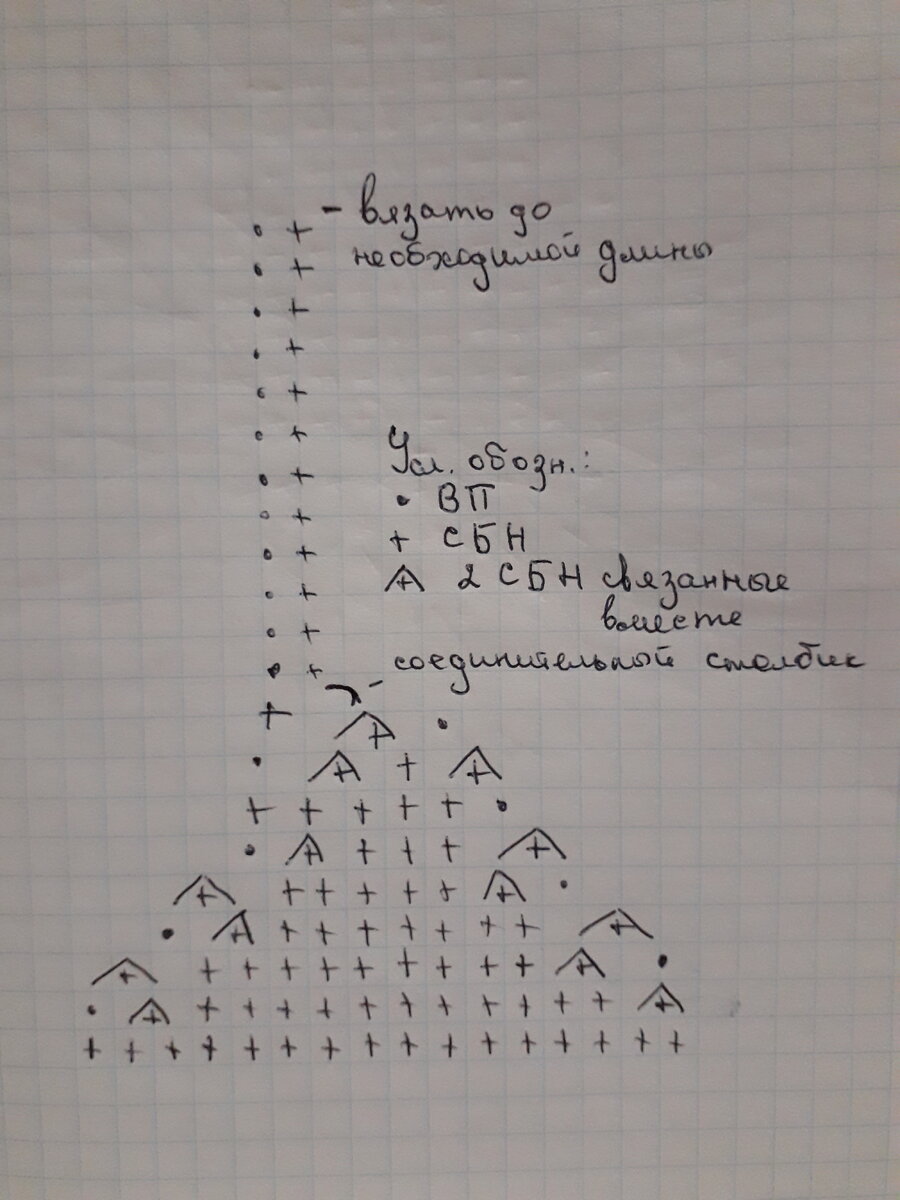 - вязать до
необходимой длины
Усл. обозн.:
• ВП
+ СБН
2 СБН связанные
вместе
- соединительный столбик